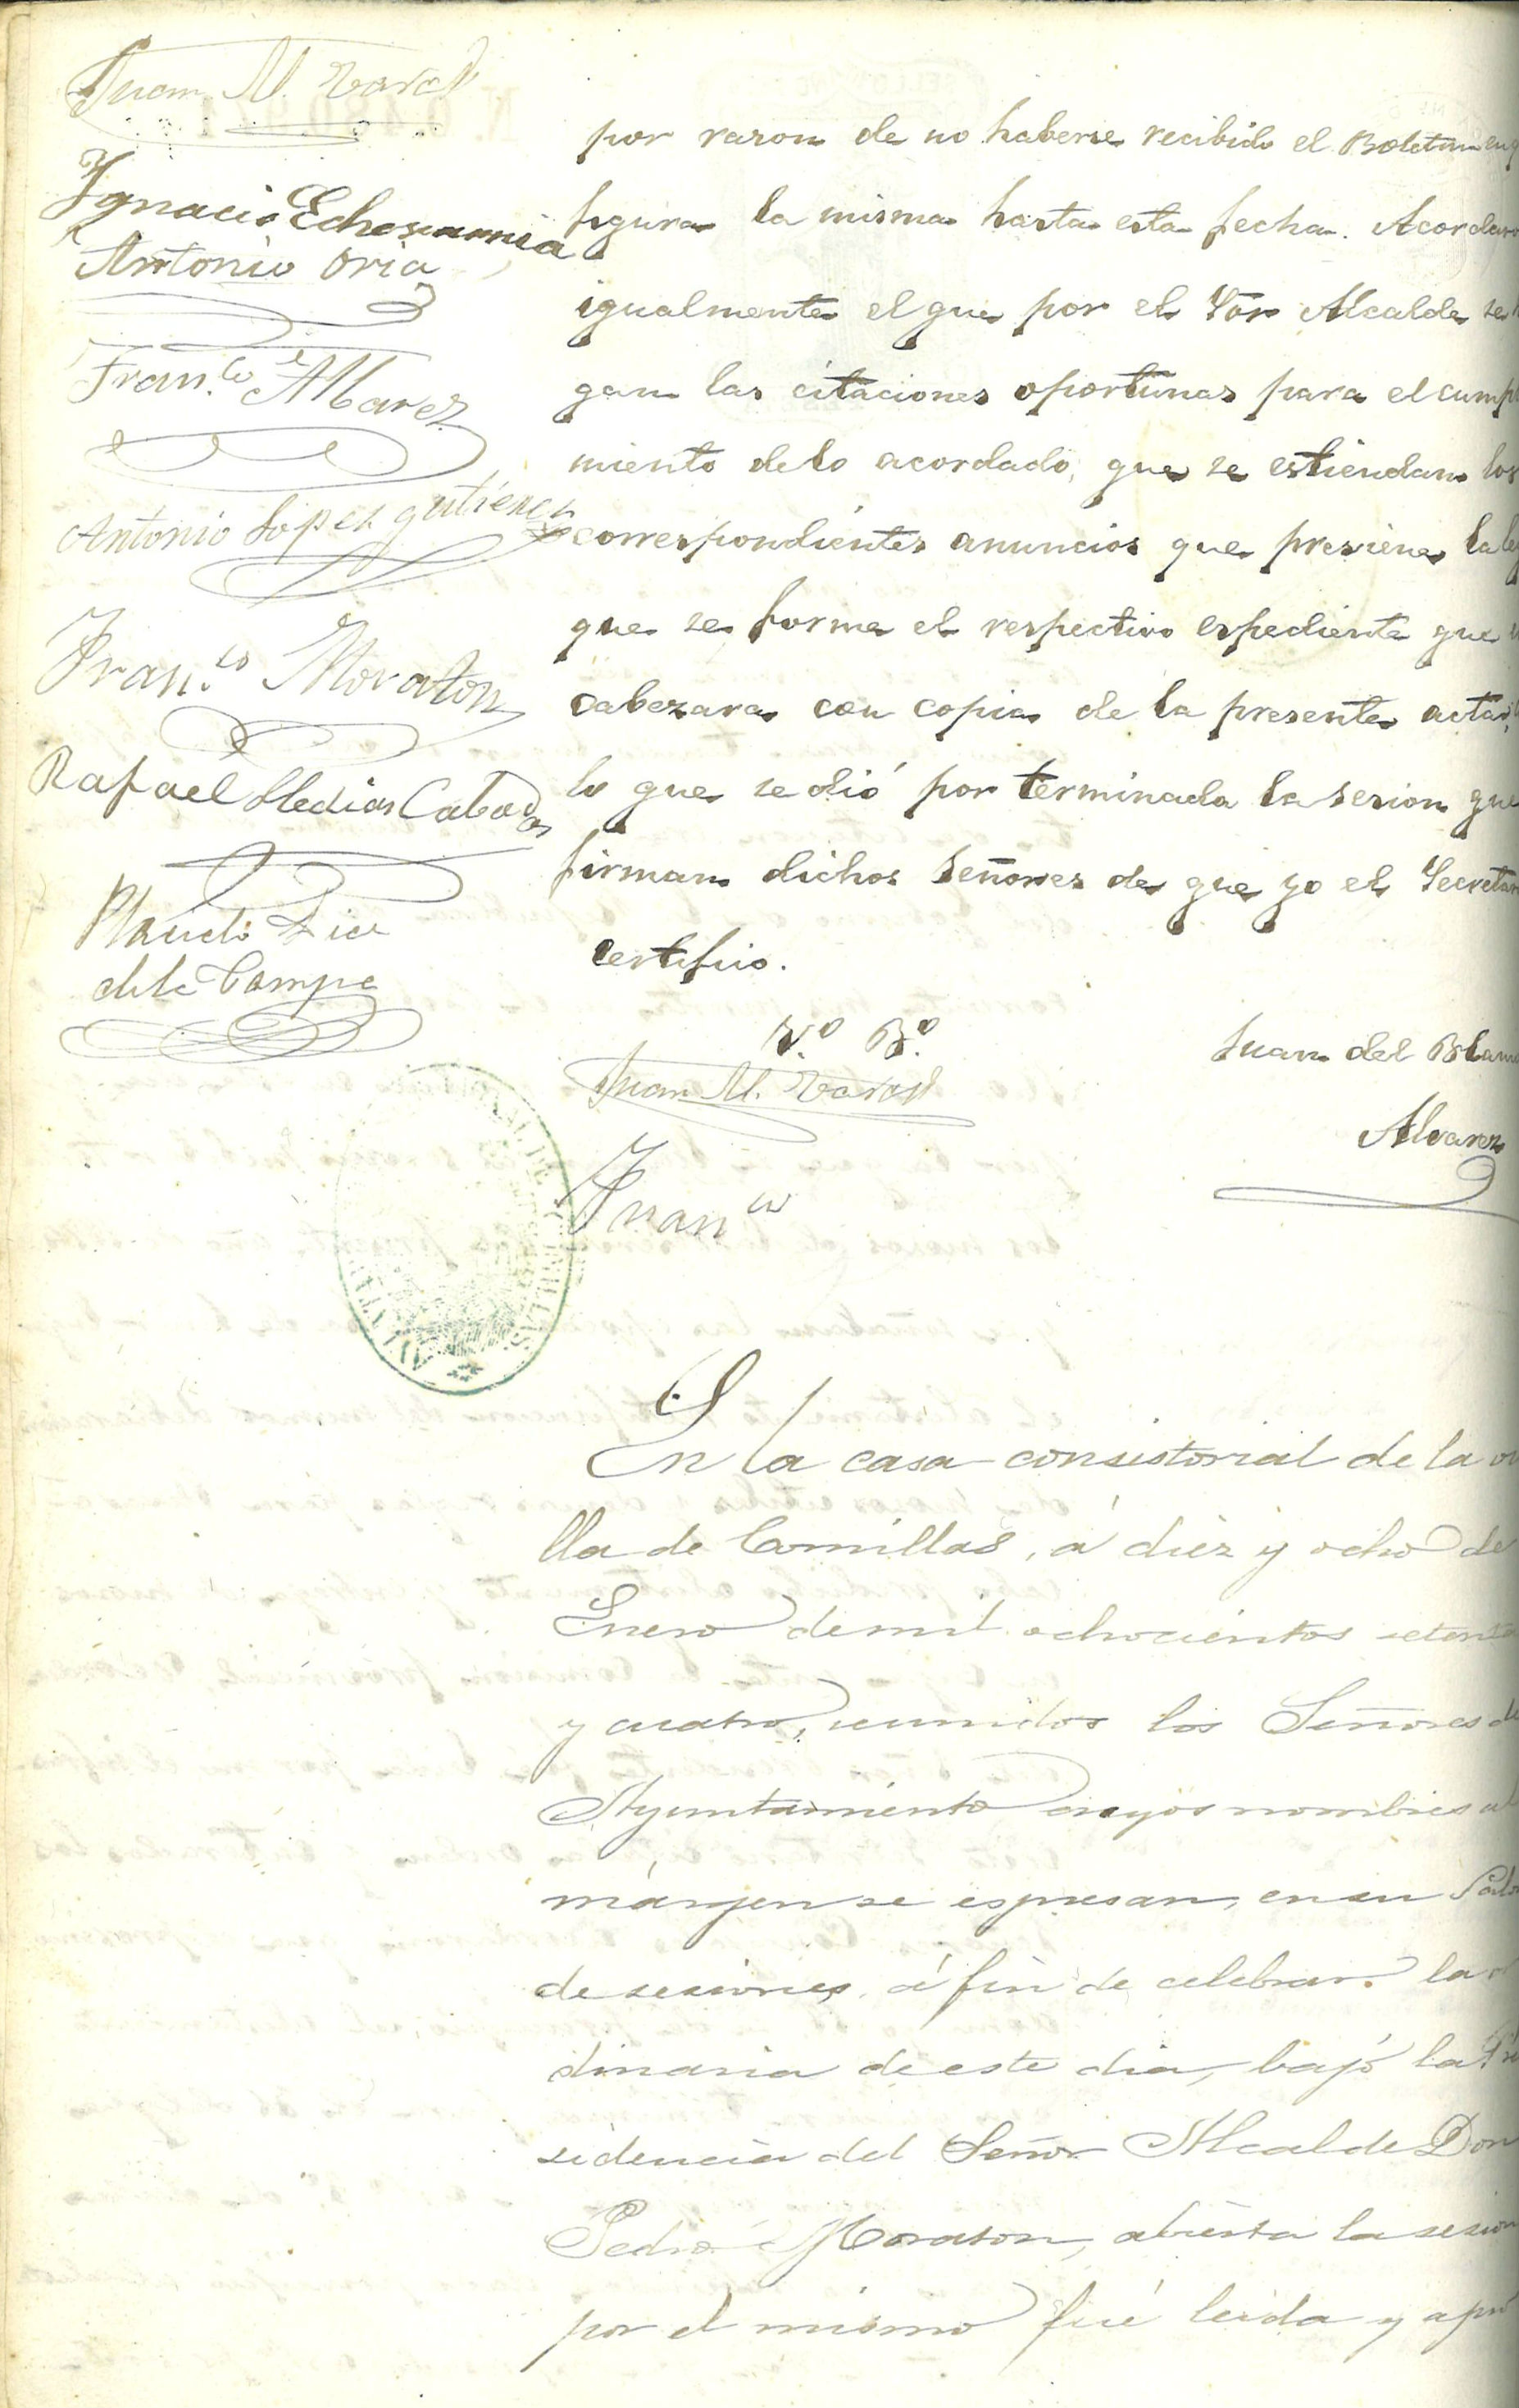 Juan M. 
Ignacio Echevarria
Antonio Oria
Fran.co Alvarez
Antonio Lopez gutierrez
Fran.co Moraton
Rafael Cabo
dela Campa
por razon de no haberse recibido el Boletin en q
figura la misma hasta esta fecha. Acordaro
igualmente el que por el Sor Alcalde se
gan las citaciones oportunas para el cumpl
miento delo acordado, que se estiendan los
correspondientes anuncios que previene la ley
que se forme el respectivo espediente que
cabezara con copia de la presente acta
lo que se dió por terminada la sesion que
firman dichos Señores de que yo el Secretar
certifico.
V.º B.º
Juan M.
Juan del Blan
Alvarez
Fran co
En la casa consistorial de la vi
lla de Comillas, á diez y ocho de
Enero de mil ochocientos setenta
y cuatro, reunidos los Señores de
Ayuntamiento cuyos nombres al
márgen se espresan, en su Salon
de sesiones, á fin de celebrar la
dinaria de este dia, bajo la Pre
sidencia del Señor Alcalde Don
Pedro Moraton, abierta la sesion
por el mismo fué leida y apro